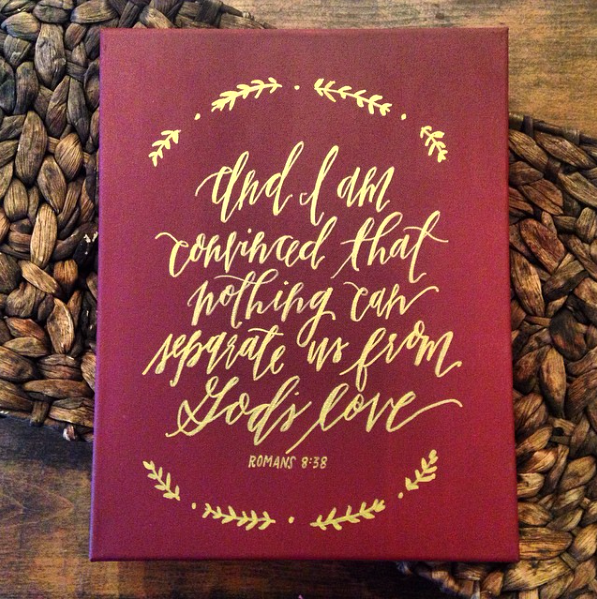 And I am
convinced that
nothing can
separate us from
God's love
ROMANS 8:38